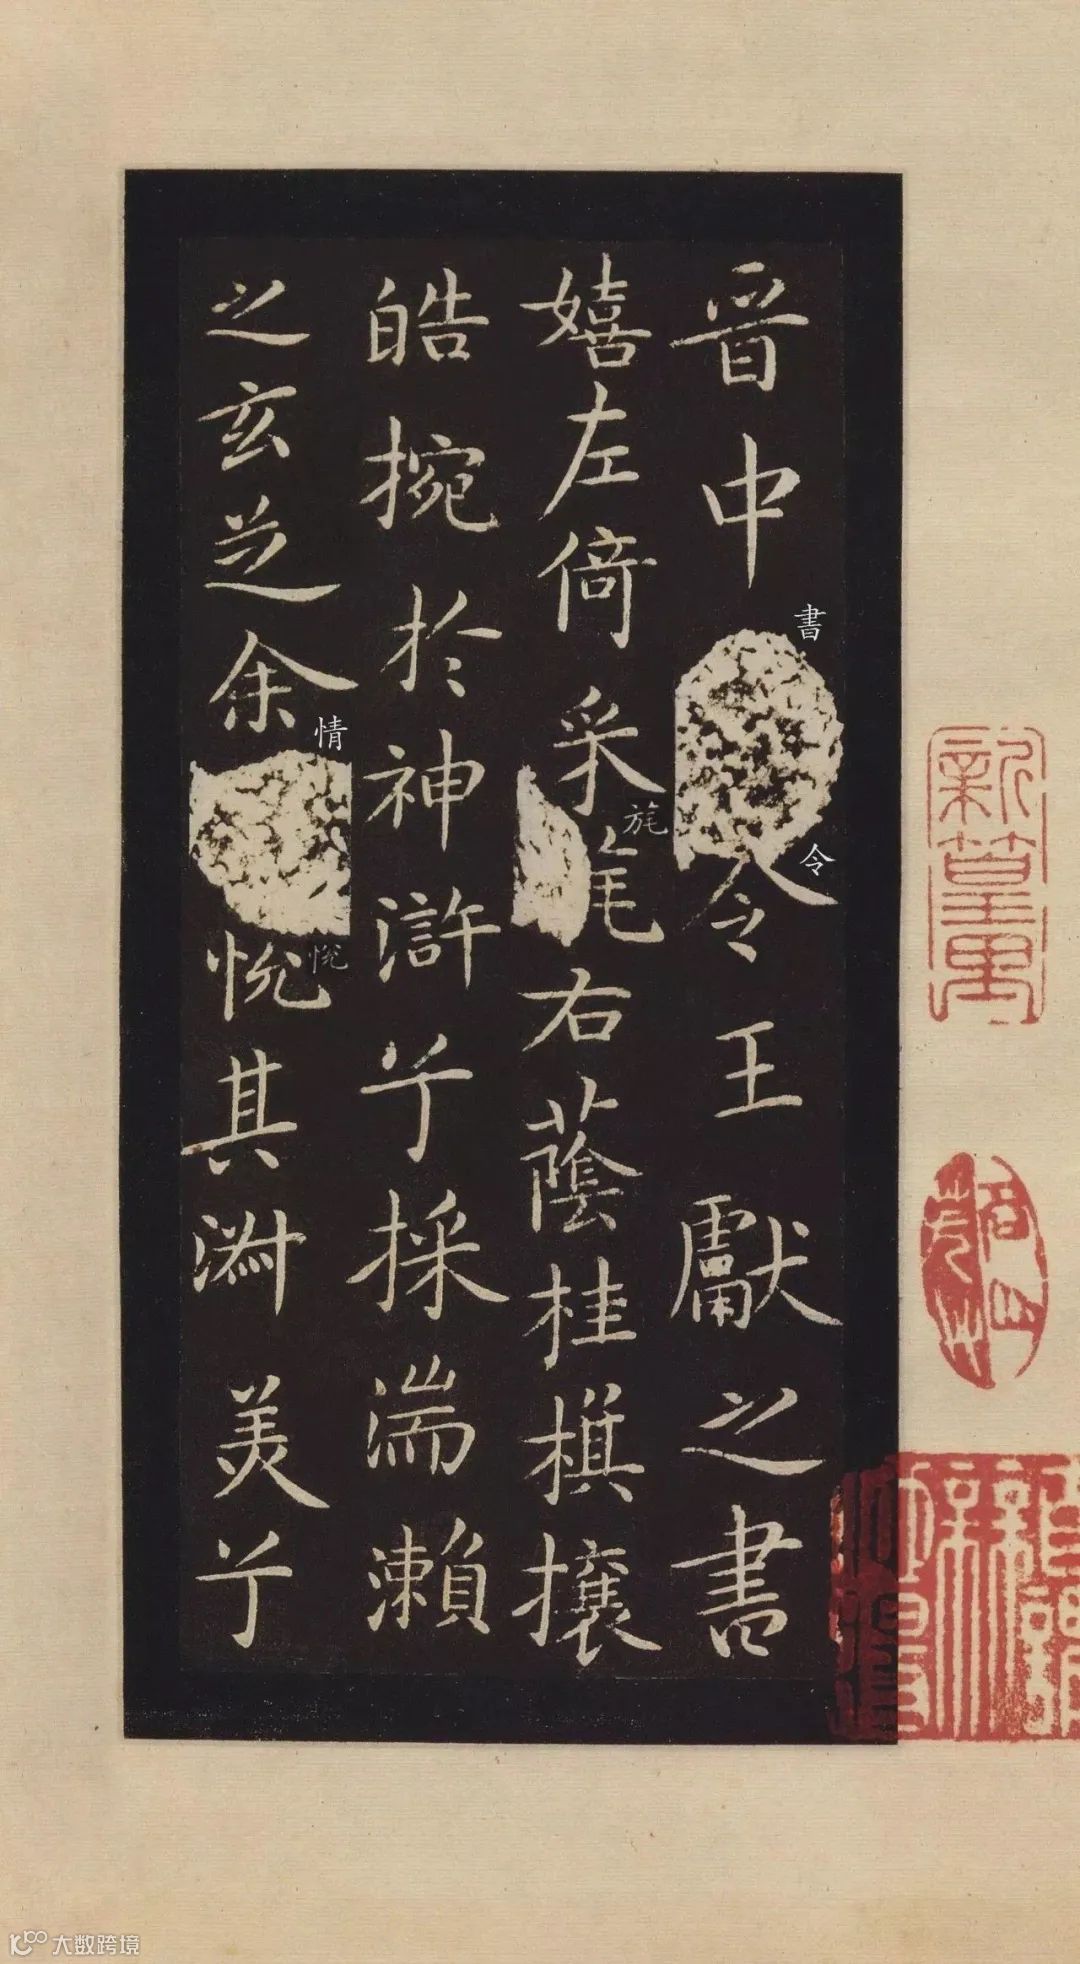 晉中書令王獻之書
嬉左倚采旄右蔭桂棋攘
皓捥於神滸兮採湍瀨
之玄芝余情悅其淋美兮
書
令
旄
情
悅
大数跨境